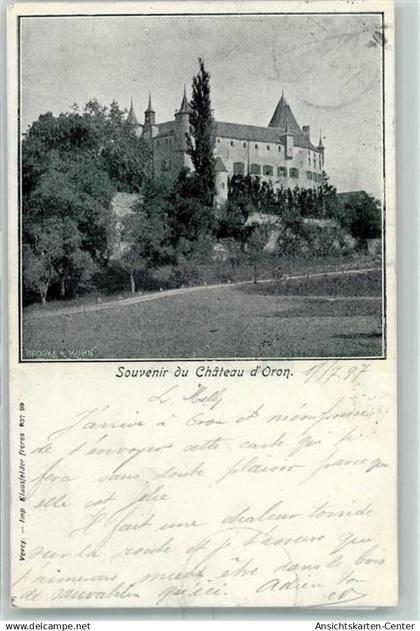 BROCKE & KUHN
Souvenir du Château d'Oron. 1/7.97
L. Melly
J'arrive à Oron et m'empresse
de t'envoyer cette carte qui te
fera sans doute plaisir parce que
elle est jolie
Il fait une chaleur torride
sur la route et je t'assure que
j'aimerais mieux être dans le bois
de sauvablin qu'ici. Adieu ton
Vevey. — Imp Klausfelder frères 837 99
Ansichtskarten-Center